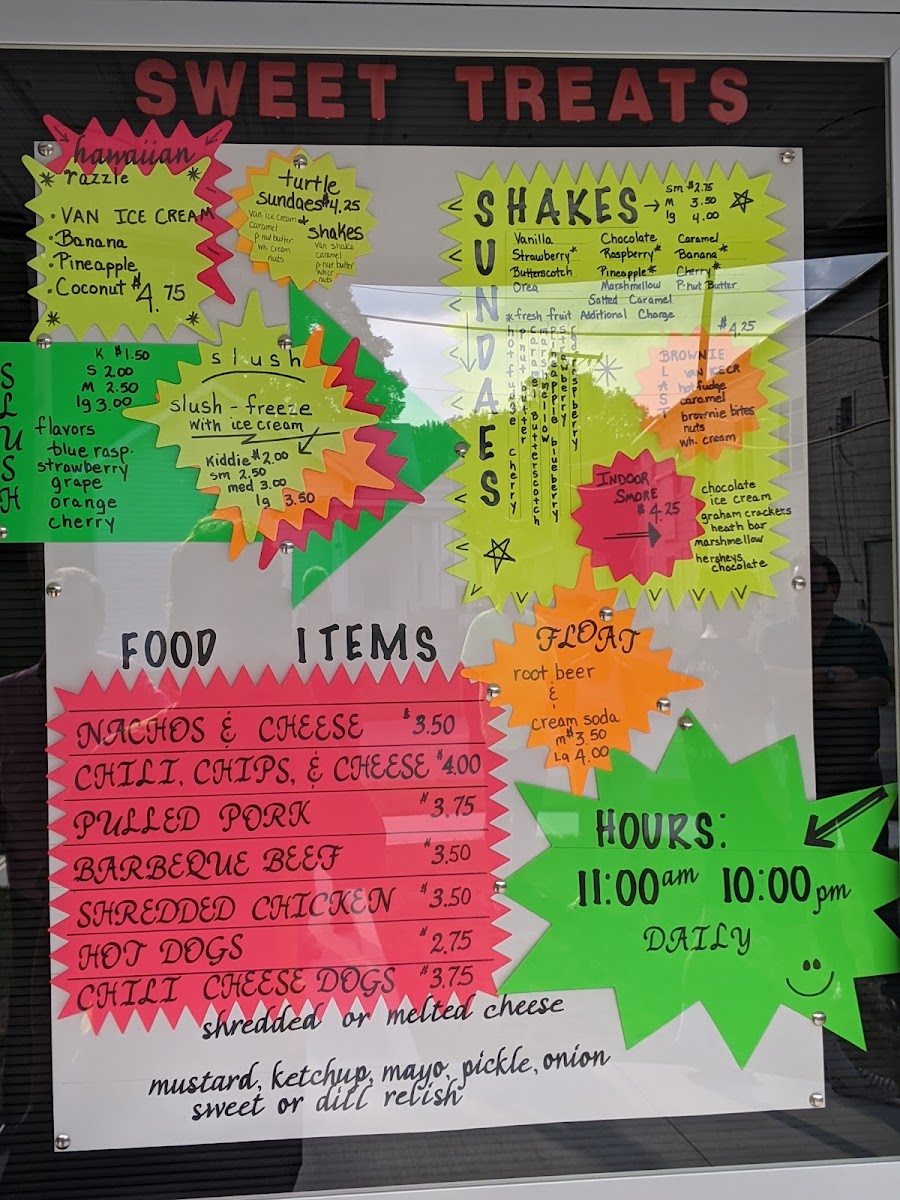 SWEET TREATS
hawaiian
razzle
• VAN ICE CREAM
• Banana
• Pineapple
• Coconut $4.75
turtle
sundaes $4.25
van ice cream
caramel
p-nut butter
wh. cream
nuts
* shakes
van shake
caramel
p-nut butter
wh cr
nuts
SLUSH
K $1.50
S 2.00
M 2.50
lg 3.00
flavors
blue rasp.
strawberry
grape
orange
cherry
slush
slush - freeze
with ice cream
Kiddie $2.00
sm 2.50
med 3.00
lg 3.50
SHAKES → sm $2.75
M 3.50
lg 4.00
Vanilla Chocolate Caramel
Strawberry* Raspberry* Banana*
Butterscotch Pineapple* Cherry*
Oreo Marshmallow P-nut Butter
Salted Caramel
*fresh fruit Additional Charge
SUNDAES
hot fudge cherry
p-nut butter
caramel butterscotch
marshmellow
pineapple blueberry
strawberry
red raspberry
$4.25
BROWNIE
BLAST
VAN ICE CR
hot fudge
caramel
brownie bites
nuts
wh. cream
INDOOR
SMORE
$4.25
chocolate
ice cream
graham crackers
heath bar
marshmellow
hersheys
chocolate
FLOAT
root beer
&
cream soda
m $3.50
La 4.00
FOOD ITEMS
NACHOS & CHEESE $3.50
CHILI, CHIPS, & CHEESE $4.00
PULLED PORK $3.75
BARBEQUE BEEF $3.50
SHREDDED CHICKEN $3.50
HOT DOGS $2.75
CHILI CHEESE DOGS $3.75
shredded or melted cheese
mustard, ketchup, mayo, pickle, onion
sweet or dill relish
HOURS:
11:00 am 10:00 pm
DAILY